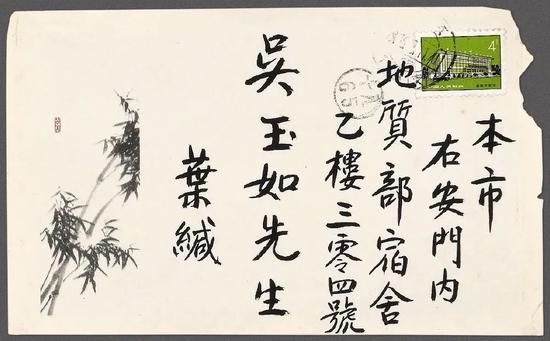 本市
右安門内
地質部宿舍
乙樓三零四號
吳玉如先生
葉緘
4